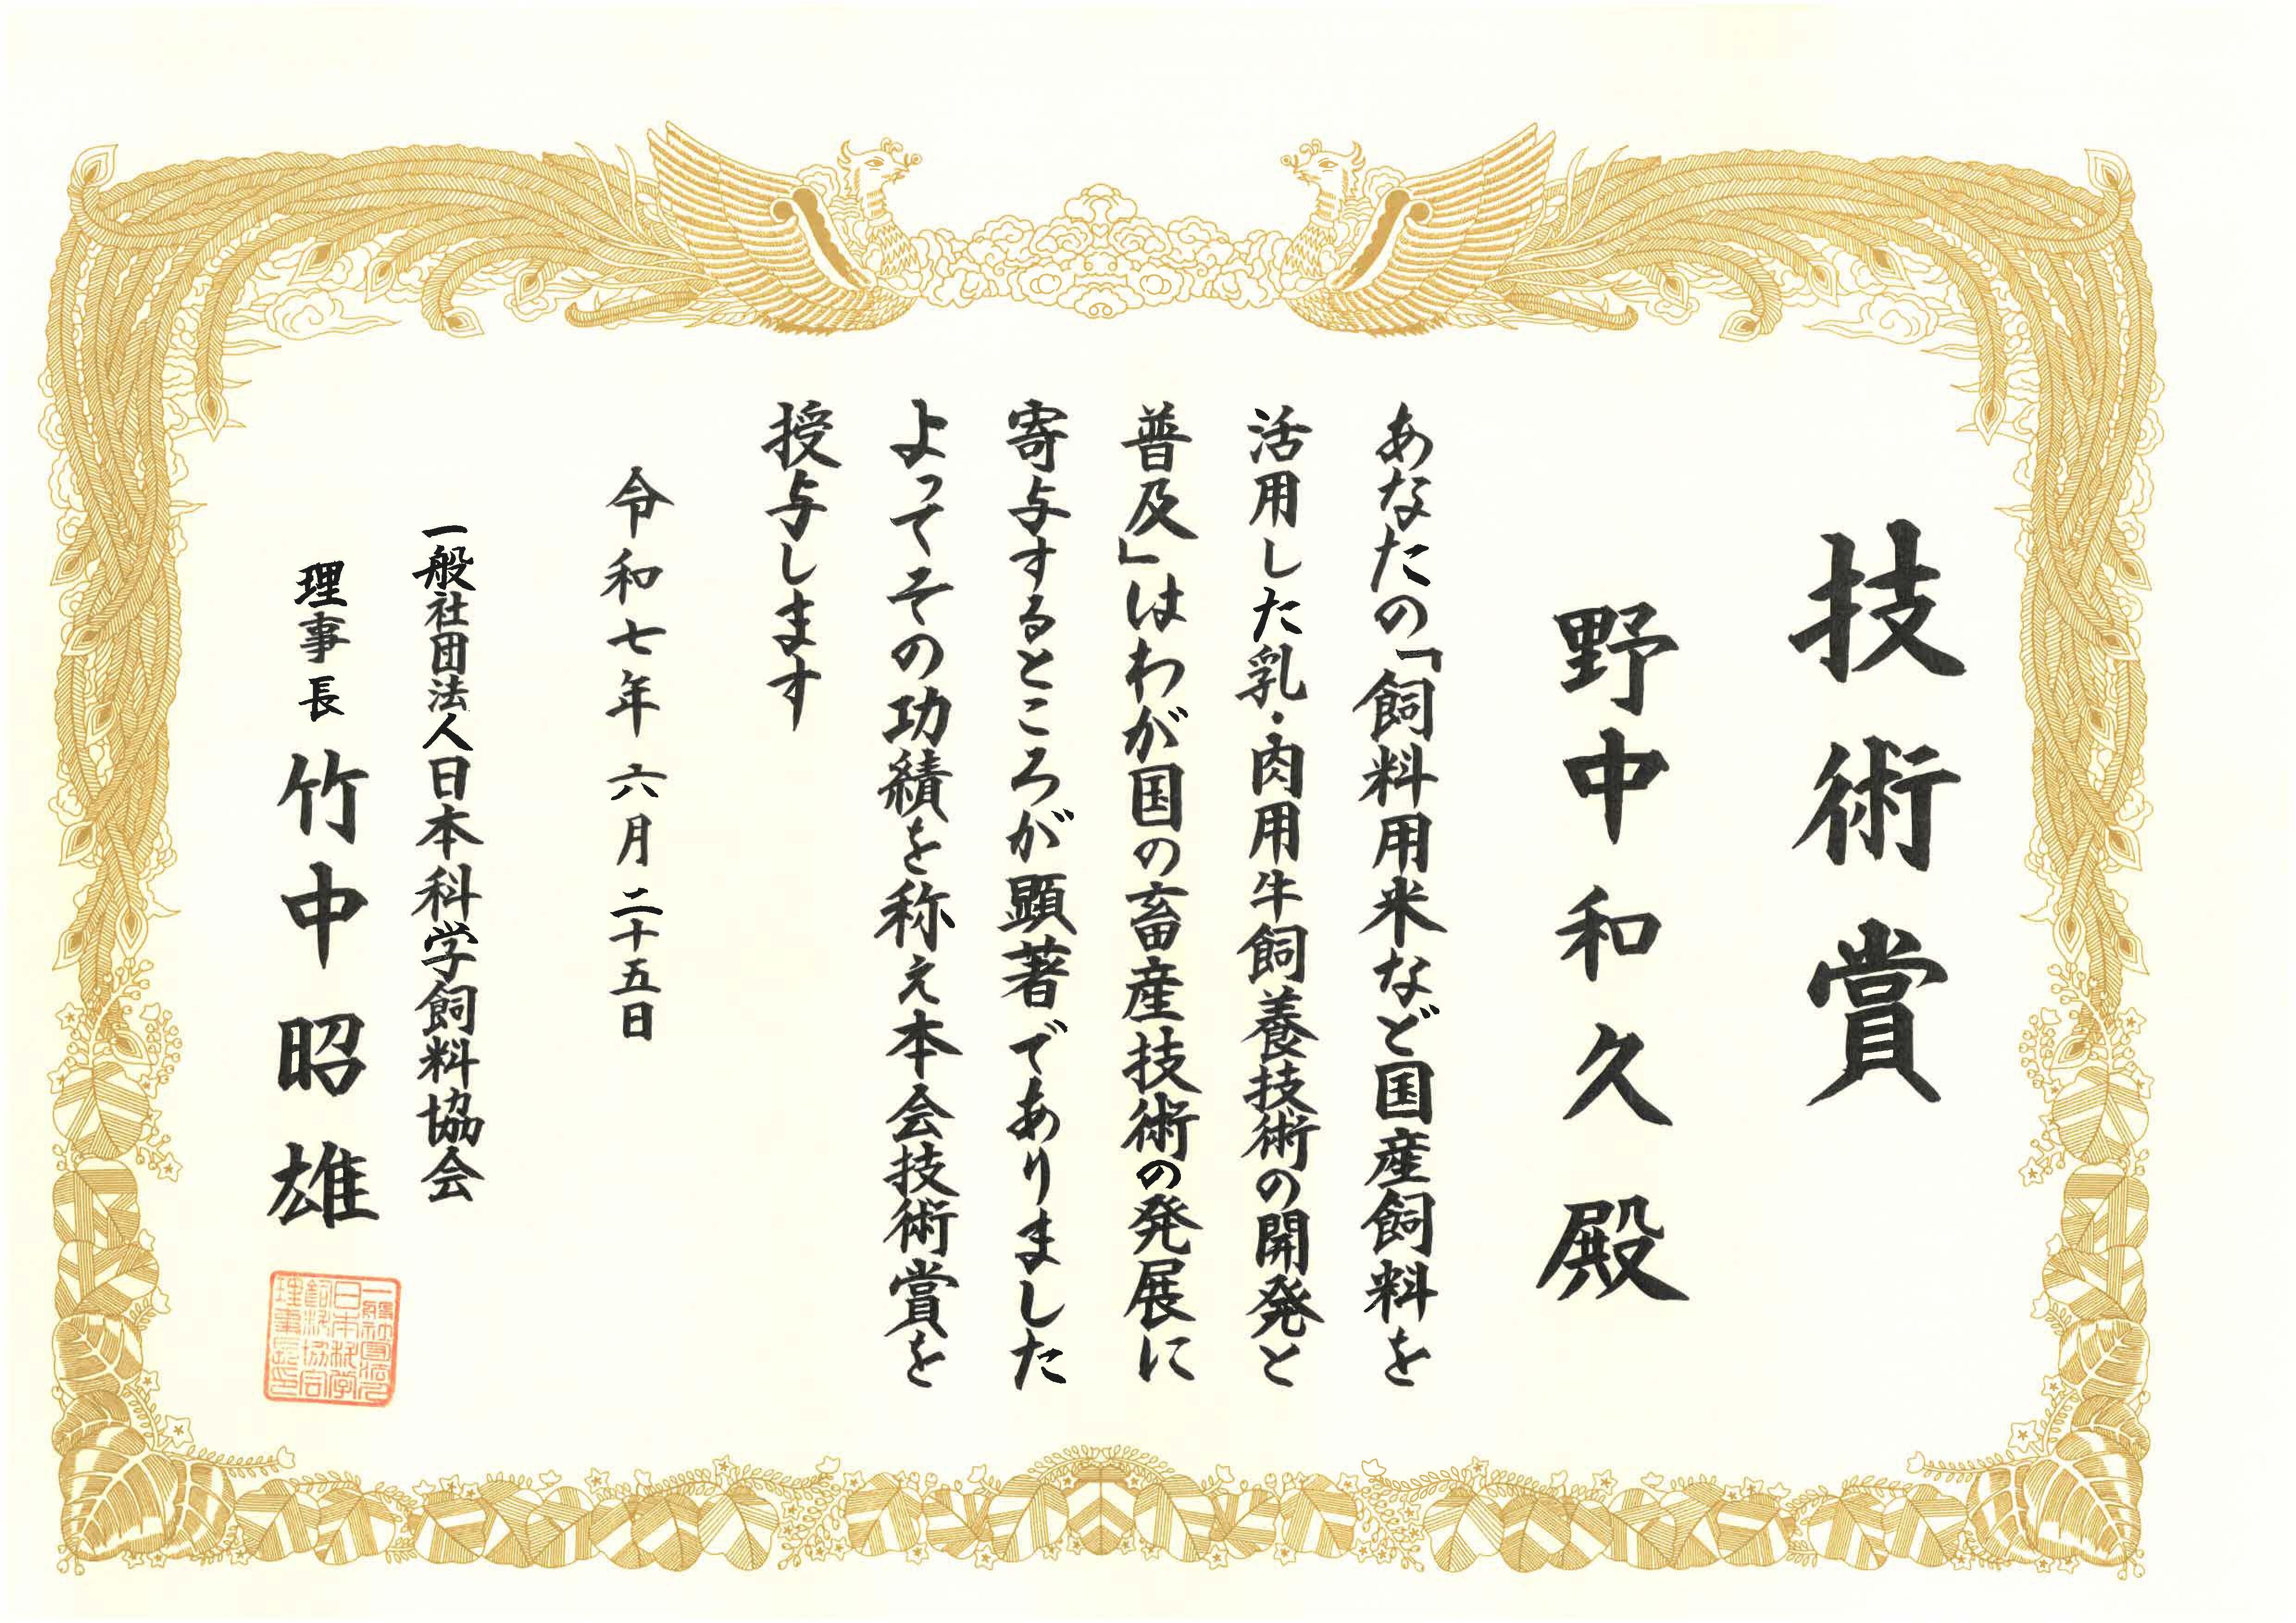 技術賞
野中和久殿
あなたの「飼料用米など国産飼料を
活用した乳・肉用牛飼養技術の開発と
普及」はわが国の畜産技術の発展に
寄与するところが顕著でありました
よってその功績を称え本会技術賞を
授与します
令和七年六月二十五日
一般社団法人日本科学飼料協会
理事長 竹中昭雄
一般社団法人
日本科学
飼料協会
理事長之印